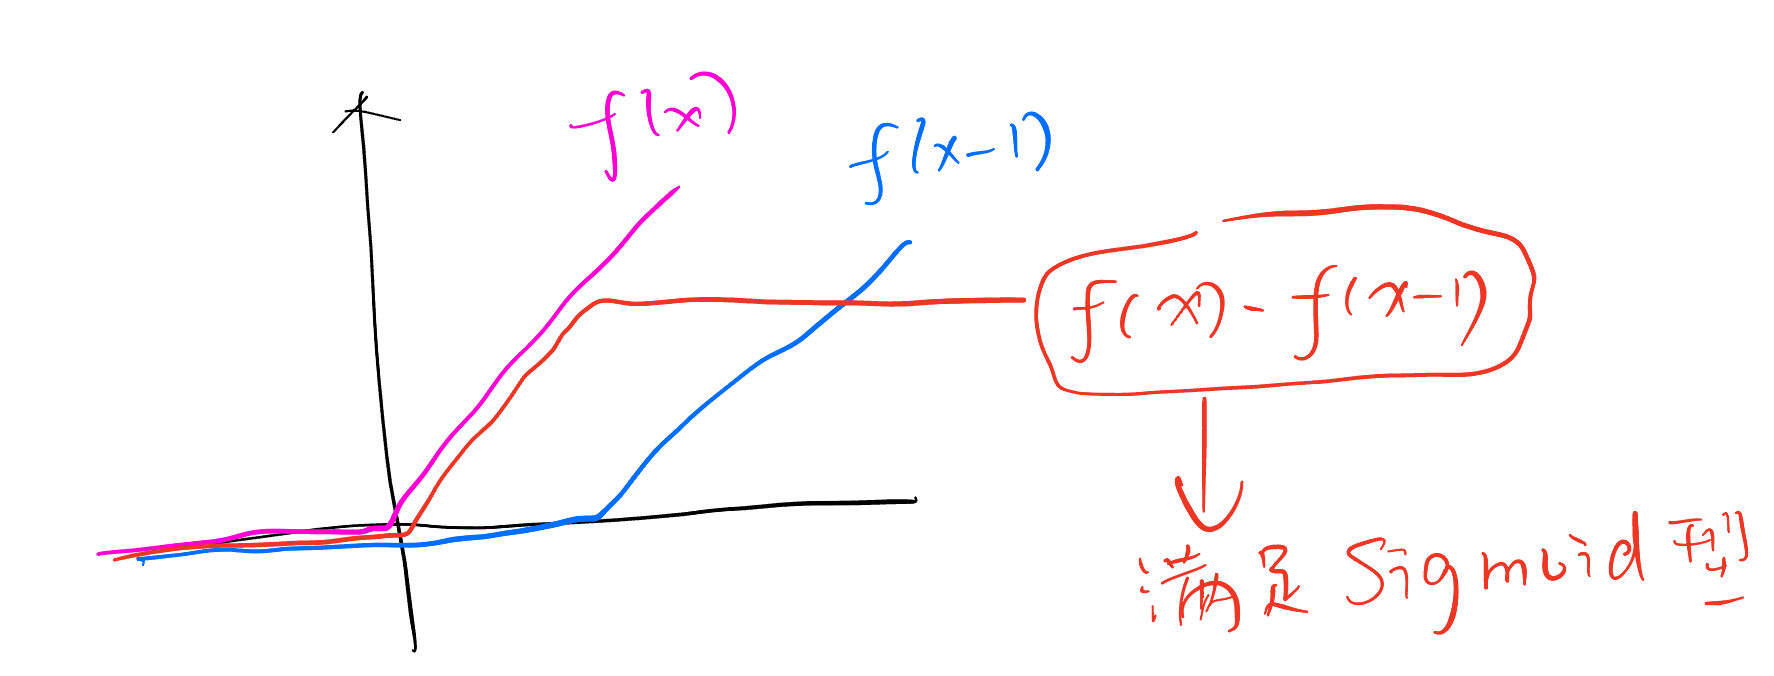 f(x)
f(x-1)
f(x) - f(x-1)
满足 Sigmoid 型